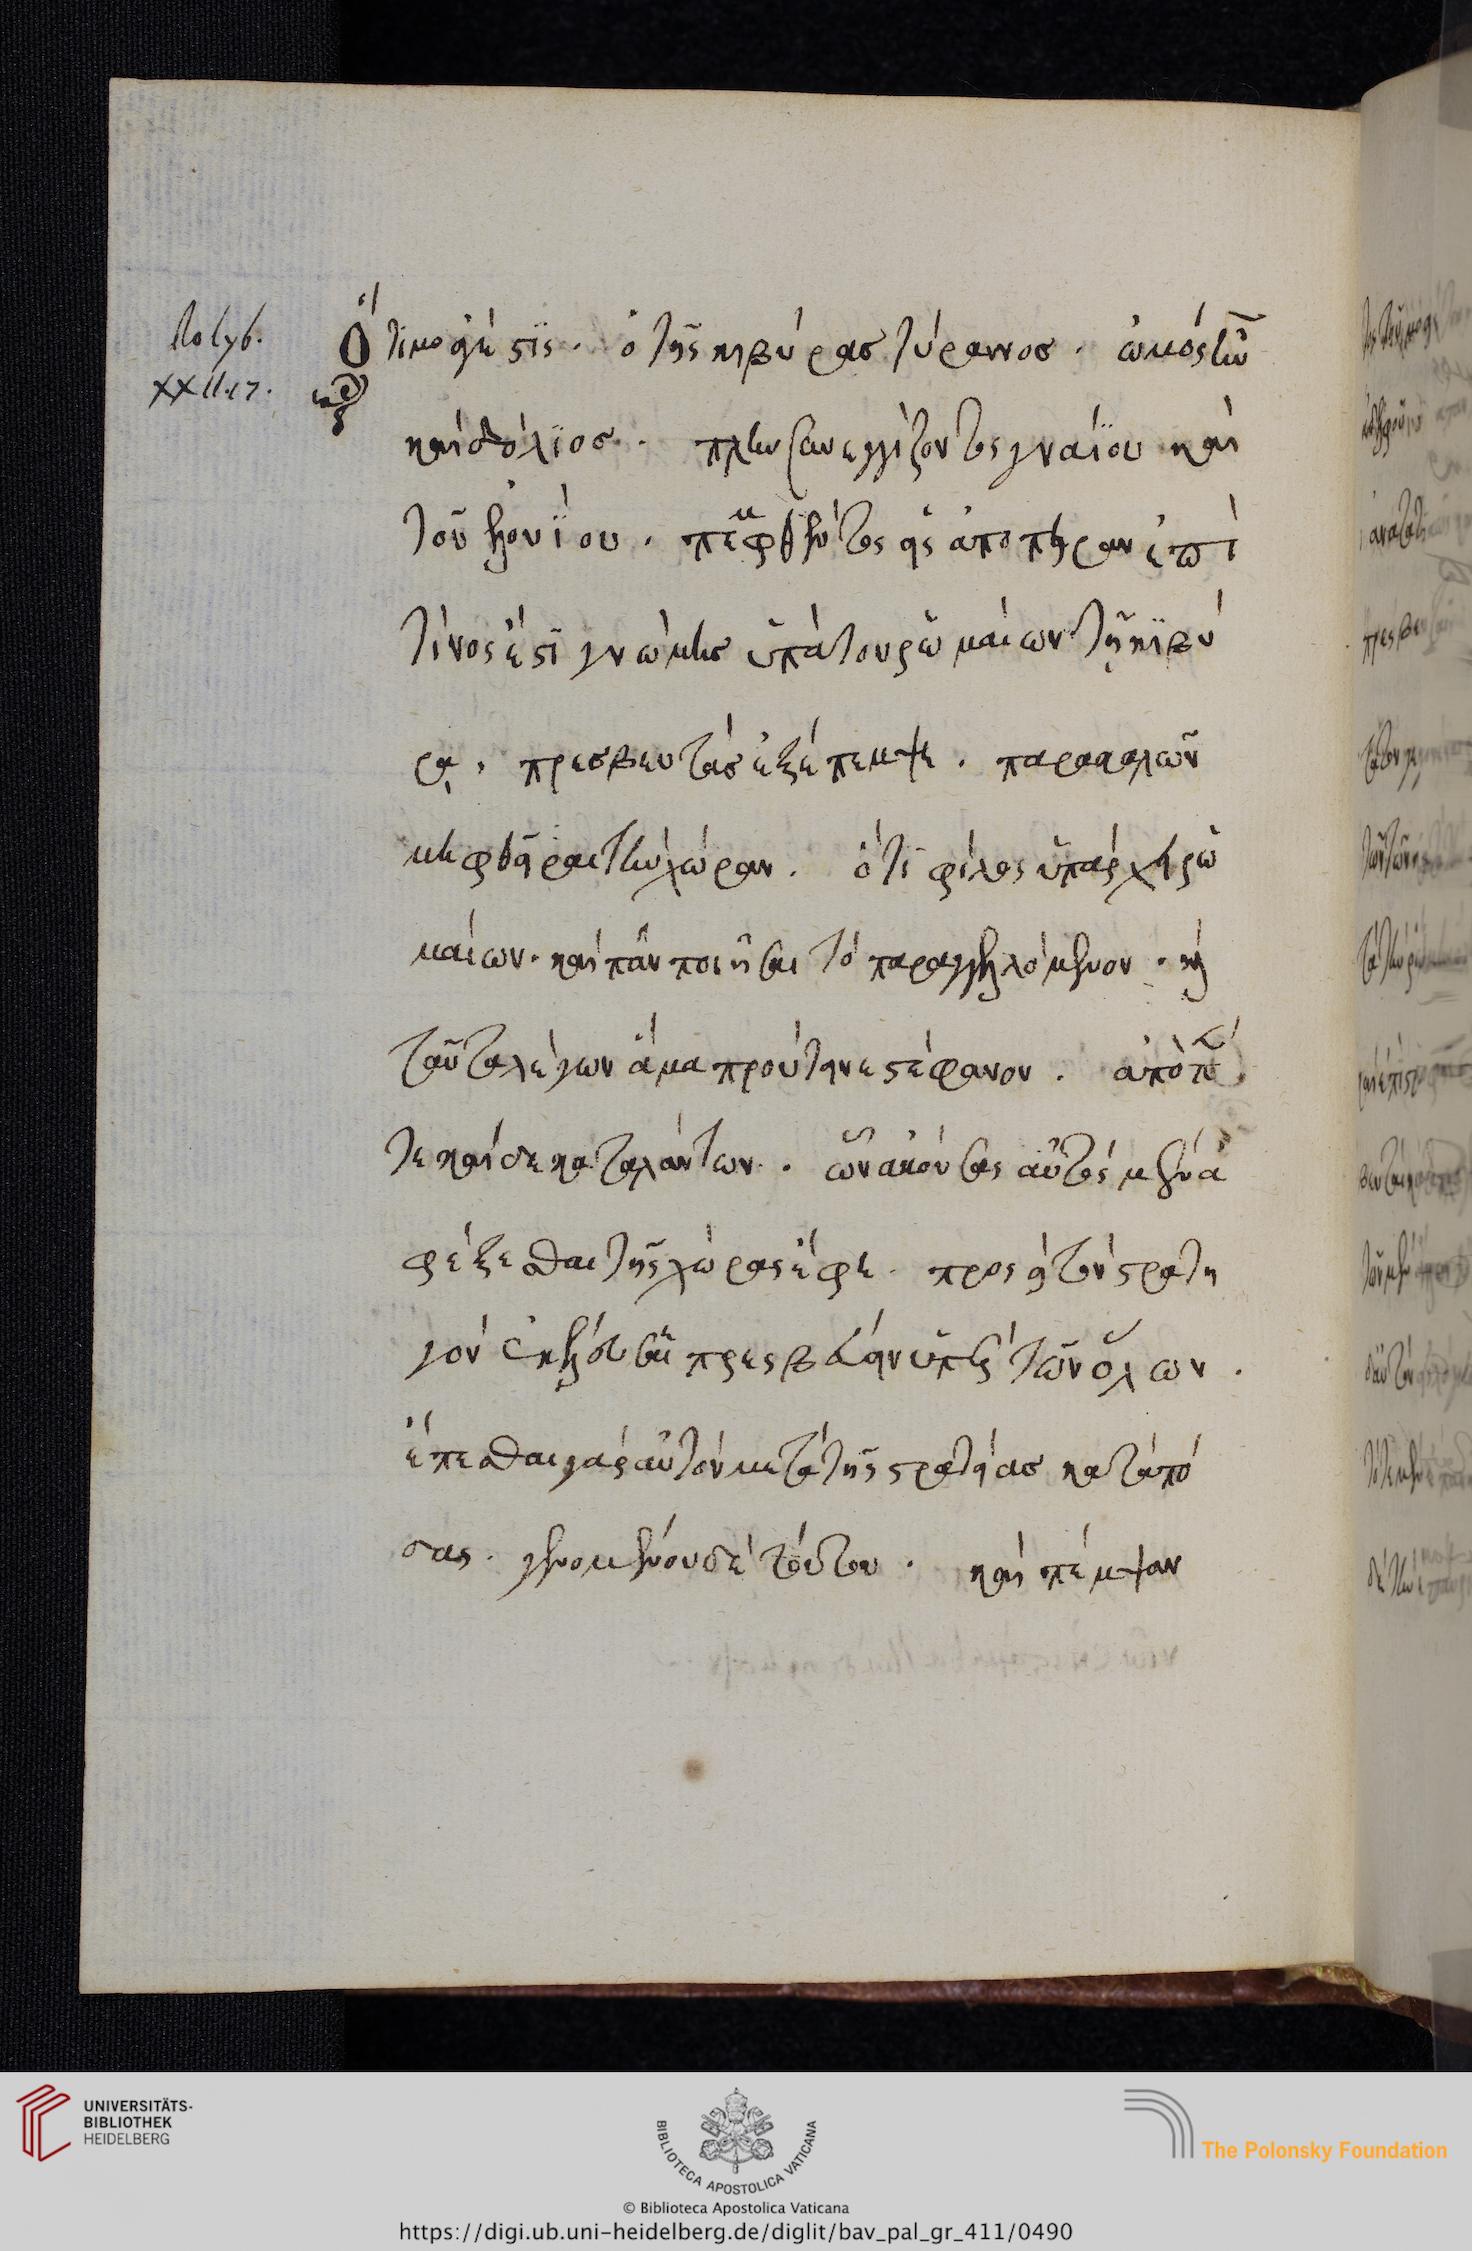 Polyb.
XXII.17.
Ὅτι μοαγέτις· ὁ τῆς κιβύρας τύραννος· ὠμός τ' ἦν
καὶ δόλιος· πλὴν συνεγγίζοντος γναΐου καὶ
τοῦ ἑλουΐου· πεμφθέντος εἰς ἀπόπειραν ἐπὶ
τίνος ἐστὶ γνώμης ὑπάτου ῥωμαίων τῇ κιβύ
ρᾳ, πρεσβευτὰς ἐξέπεμψε· παρακαλῶν
μὴ φθεῖραι τὴν χώραν· ὅτι φίλος ὑπάρχει ῥω
μαίων· καὶ πᾶν ποιήσει τὸ παραγγελλόμενον· καὶ
ταῦτα λέγων ἅμα προύτεινε στέφανον· ἀπὸ πέν
τε καὶ δέκα ταλάντων· ὧν ἀκούσας αὐτὸς μὲν ἀ
φέξεσθαι τῆς χώρας ἔφη· πρὸς δὲ τὸν στρατη
γὸν ἐκέλευσε πρεσβεύειν ὑπὲρ τῶν ὅλων·
ἕπεσθαι γὰρ αὐτὸν μετὰ τῆς στρατείας κατὰ πό
δας· γενομένου δὲ τούτου· καὶ πέμψαν
UNIVERSITÄTS-
BIBLIOTHEK
HEIDELBERG
BIBLIOTECA APOSTOLICA VATICANA
© Biblioteca Apostolica Vaticana
The Polonsky Foundation
https://digi.ub.uni-heidelberg.de/diglit/bav_pal_gr_411/0490